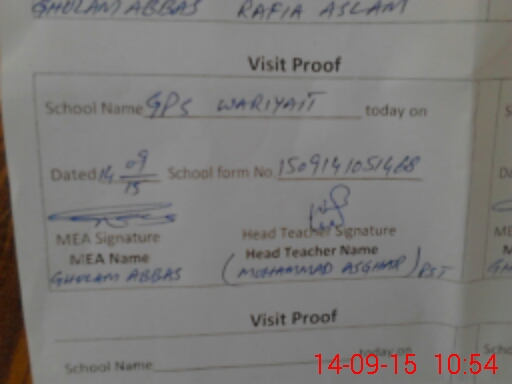 GHULAM ABBAS RAFIA ASLAM
Visit Proof
School Name GPS WARIYAIT today on
Dated 14 09/15 School form No. 1509141051468
MEA Signature Head Teacher Signature
MEA Name Head Teacher Name
GHULAM ABBAS (MOHAMMAD ASGHAR) PST
Visit Proof
School Name today on
14-09-15 10:54